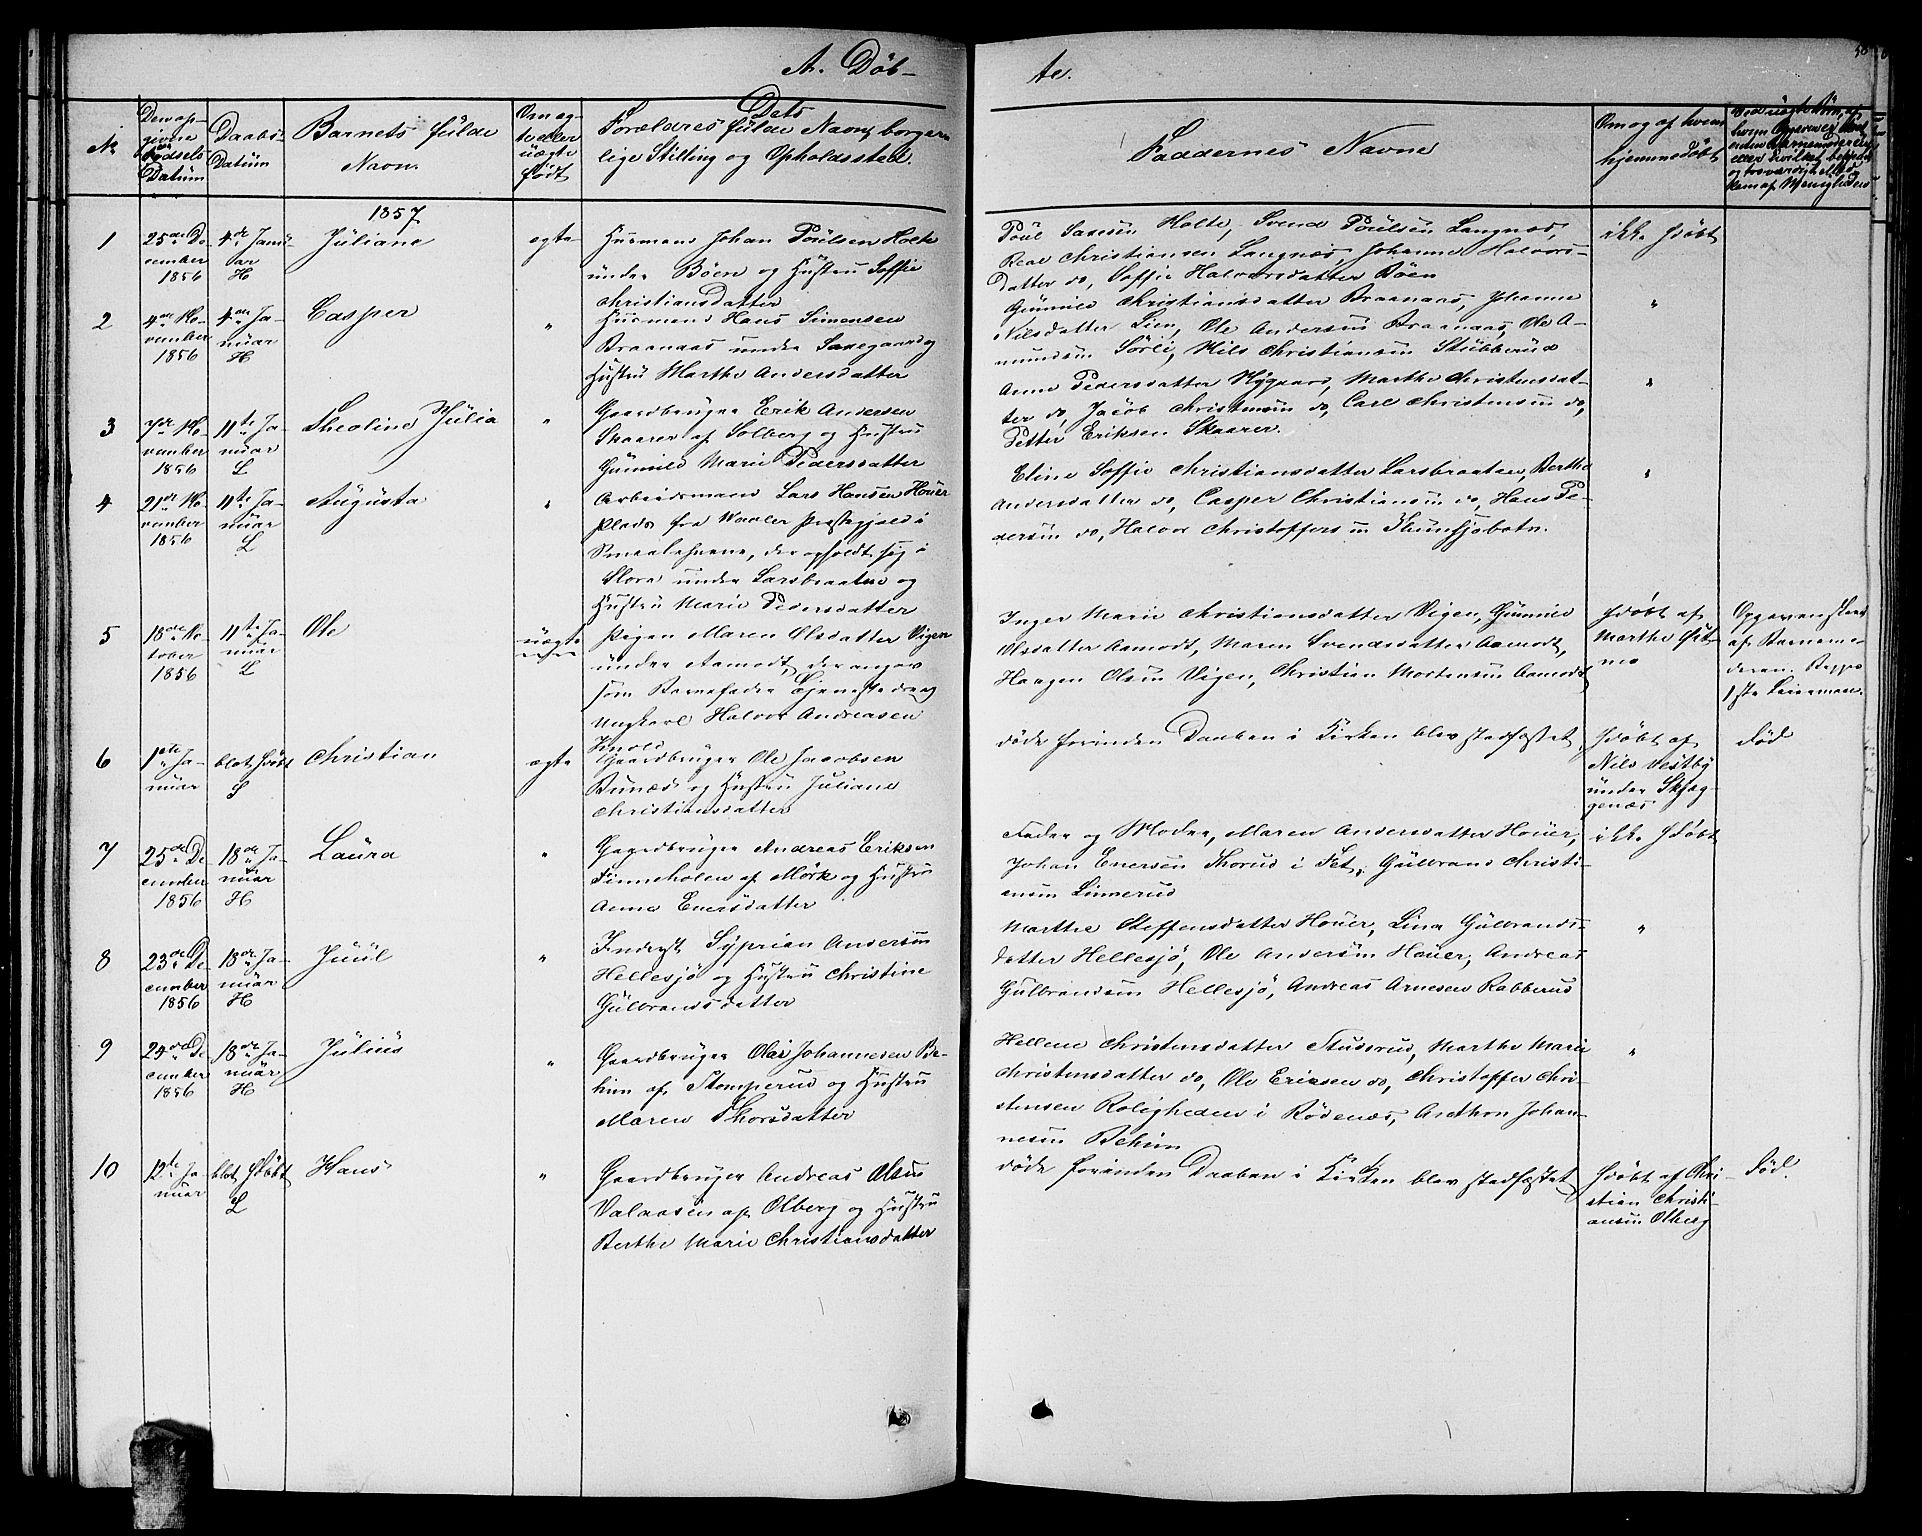 A. Døb-
te.
58
No
Den opgivne Fødsels Datüm
Daabs-Datüm
Barnets fülde Navn.
Om egte eller üægte født
Dets Forældres fülde Navn, borgerlige Stilling og Opholdssted.
Faddernes Navne
Om og af hvem hjemmedøbt
1857
1
25de De-
cember
1856
4de Janü-
ar
H
Jüliane
egte
Husmand Johan Poülsen Holte
ünder Böen og Hustru Soffie
Christiansdatter
Poül Poülsen Langnæs,
Real Christiansen Langnæs, Johanne Halvors-
datter do, Soffie Halvorsdatter Böen
ikke hdøbt
2
4de No-
vember
1856
4de Ja-
nüar
H
Casper
"
Husmand Hans Simensen
Braanaas ünder Saxegaard og
Hustrü Marthe Andersdatter
Günnild Christiansdatter Braanaas, Johanne
Nilsdatter Lien, Ole Andersen Braanaas, Ole A-
mundsen Sörli, Nils Christiansen Stübberüd
"
3
7de No-
vember
1856
11te Ja-
nüar
L
Theoline Jülia
"
Gaardbrüger Erik Andersen
Skaarer af Solberg og Hustru
Günnild Marie Pedersdatter
Anne Pedersdatter Nygaard, Marthe Christensdat-
ter do, Jacob Christensen do, Carl Christensen do,
Petter Eriksen Skaarer.
"
4
21de No-
vember
1856
11te Ja-
nüar
L
Augüsta
"
Arbeidsmand Lars Hansen Hoüer
Plads fra Waaler Præstegjeld i
Smaalehnene, der opholdt sig i
Flora ünder Larsbraaten og
Hustrü Marie Pedersdatter
Eline Soffie Christiansdatter Larsbraaten, Berthe
Andersdatter do, Casper Christiansen do, Hans Pe-
dersen do, Halvor Christoffersen
"
5
18de Oc-
tober
1856
11te Ja-
nüar
L
Ole
üægte
Pigen Maren Olsdatter Vigen
ünder Aamodt, der angav
som Barnefader Tjenestedreng
Ungkarl Halvor Andreasen
Inger Marie Christiansdatter Vigen, Günnild
Olsdatter Aamodt, Maren Svendsdatter Aamodt,
Haagen Olsen Vigen, Christian Mortensen Aamodt
hdøbt af
Marthe
Opgaven skeed
af Barnemo-
deren. Begges
1ste Leiermaal.
6
1ste Ja-
nüar
blot hdøbt
Christian
egte
Gaardbrüger Ole Jacobsen
Bunæs og Hustru Juliane
Christiansdatter
døde forinden Daaben i Kirken blev stadfæstet
hdøbt af
Nils Vestby
ünder Skjæg-
genæs
død
7
25de De-
cember
1856
18de Ja-
nüar
H
Laüra
"
Gaardbrüger Andreas Eriksen
Finneholen af Mörk og Hustru
Anne Enersdatter
Fader og Moder, Maren Andersdatter Hoüer,
Johan Enersen Thorud i Fet, Gülbrand Christi-
ansen Linnerud
ikke hdøbt
8
23de De-
cember
1856
18de Ja-
nüar
H
Jüül
"
Inderst Syprian Andersen
Hellesjö og Hustru Christine
Gülbrandsdatter
Marthe Steffensdatter Hoüer, Lina Gülbrands-
datter Hellesjö, Ole Andersen Hoüer, Andreas
Gülbrandsen Hellesjö, Andreas Arnesen Rabberud
"
9
24de De-
cember
1856
18de Ja-
nüar
H
Jüliüs
"
Gaardbrüger Olai Johannesen Be-
him af Stomperud og Hustru
Maren Thorsdatter
Hellene Christensdatter Tüsserud, Marthe Marie
Christensdatter do, Ole Eriksen do, Christoffer Chri-
stensen Roligheden i Rödenæs, Anthon Johan-
nesen Behim
"
10
12te Ja-
nüar
blot hdøbt
L
Hans
"
Gaardbrüger Andreas Olsen
Valaasen af Olberg og Hustru
Berthe Marie Christiansdatter
døde forinden Daaben i Kirken blev stadfæstet
hdøbt af Chri-
stian Christi-
ansen Olberg
død.